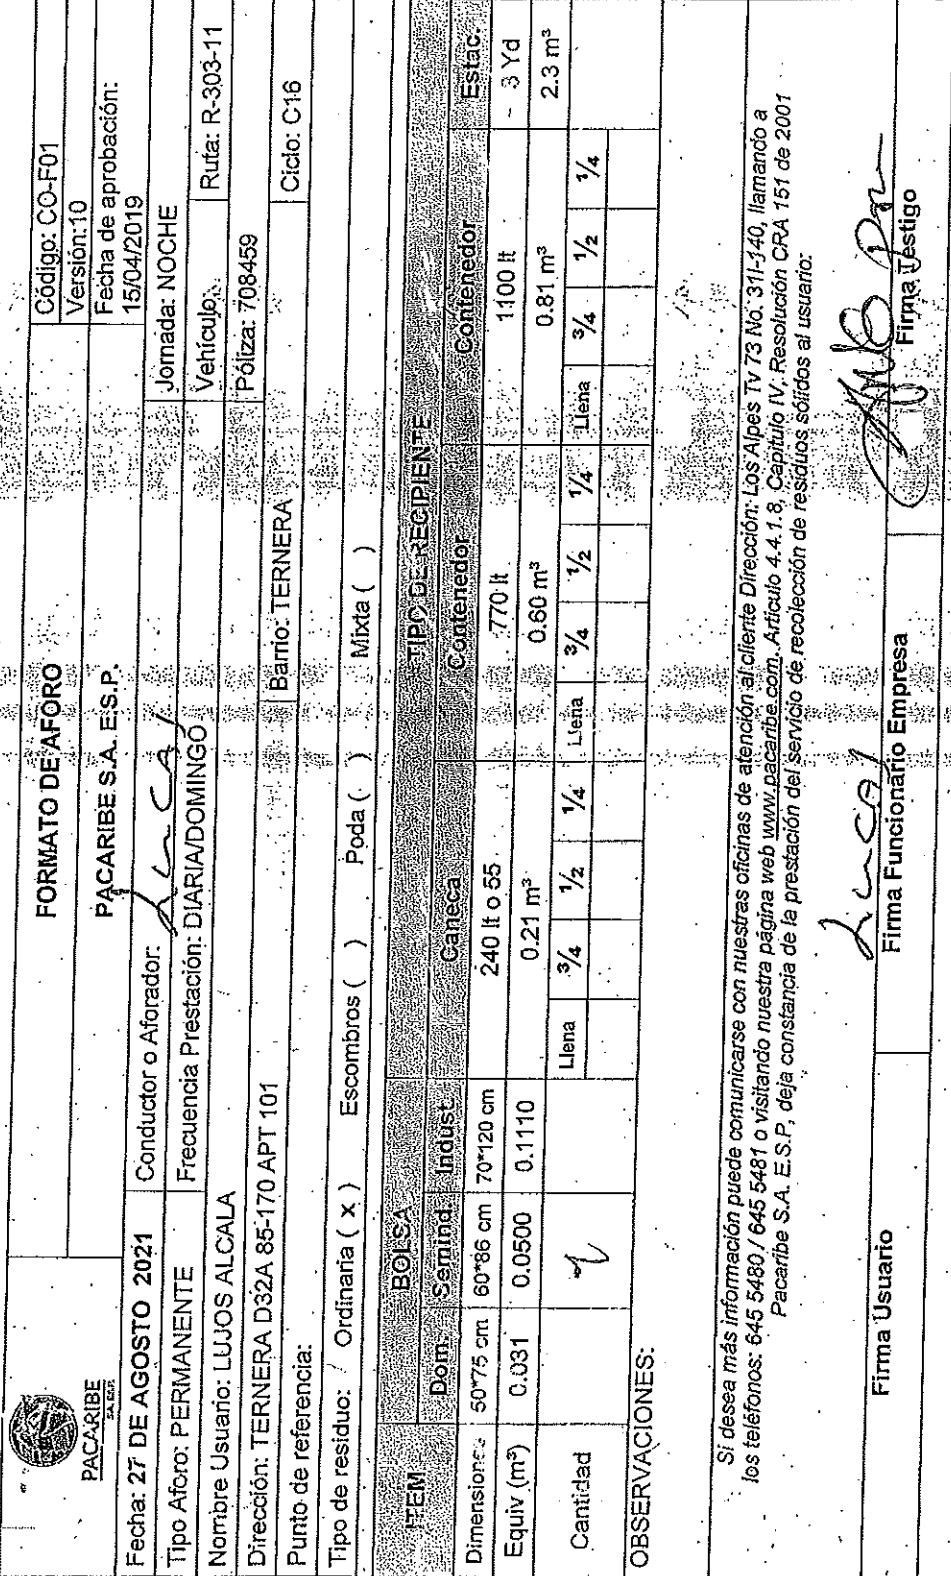 PACARIBE
S.A. E.S.P.
FORMATO DE AFORO
PACARIBE S.A. E.S.P.
Código: CO-F01
Versión:10
Fecha de aprobación:
15/04/2019
Fecha: 27 DE AGOSTO 2021 Conductor o Aforador: Jornada: NOCHE
Tipo Aforo: PERMANENTE Frecuencia Prestación: DIARIA/DOMINGO Vehículo: Ruta: R-303-11
Nombre Usuario: LUJOS ALCALA Póliza: 708459
Dirección: TERNERA D32A 85-170 APT 101 Barrio: TERNERA Ciclo: C16
Punto de referencia:
Tipo de residuo: Ordinaria ( x ) Escombros ( ) Poda ( ) Mixta ( )
ITEM BOLSA TIPO DE RECIPIENTE
Dom. Semind. Indust. Caneca Contenedor Contenedor Estac.
Dimensiones 50*75 cm 60*86 cm 70*120 cm 240 lt o 55 770 lt 1100 lt 3 Yd
Equiv (m³) 0.031 0.0500 0.1110 0.21 m³ 0.60 m³ 0.81 m³ 2.3 m³
Cantidad Llena 3/4 1/2 1/4 Llena 3/4 1/2 1/4 Llena 3/4 1/2 1/4
OBSERVACIONES:
Si desea más información puede comunicarse con nuestras oficinas de atención al cliente Dirección: Los Alpes Tv 73 No. 31I-140, llamando a
los teléfonos: 645 5480 / 645 5481 o visitando nuestra página web www.pacaribe.com. Articulo 4.4.1.8, Capitulo IV, Resolución CRA 151 de 2001
Pacaribe S.A. E.S.P, deja constancia de la prestación del servicio de recolección de residuos sólidos al usuario:
Firma Usuario Firma Funcionario Empresa Firma Testigo